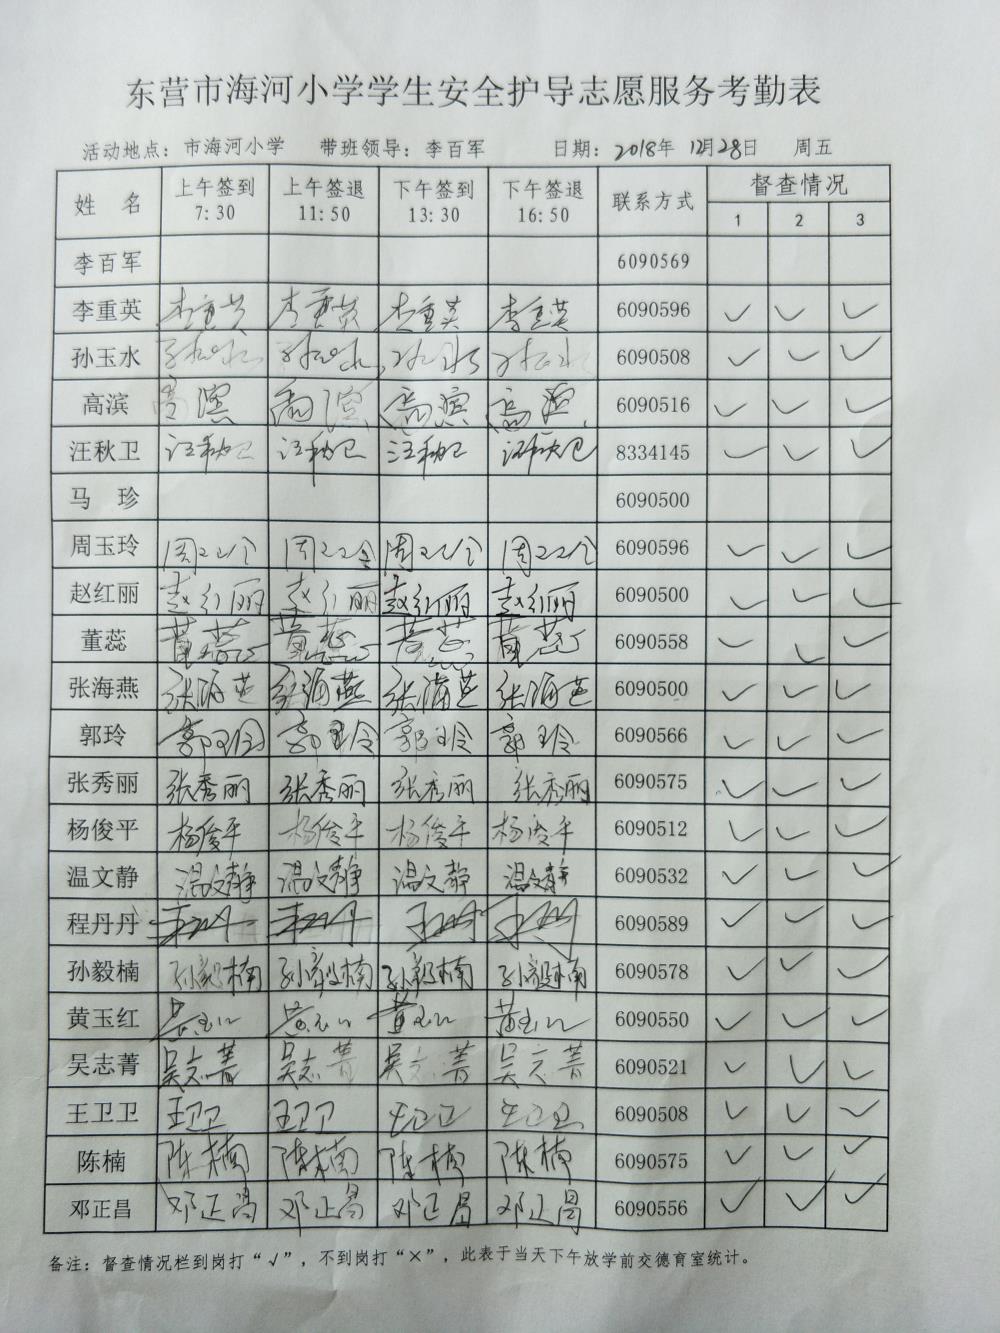 东营市海河小学学生安全护导志愿服务考勤表
活动地点：市海河小学 带班领导：李百军 日期：2018年 12月28日 周五
姓 名 上午签到 7:30 上午签退 11:50 下午签到 13:30 下午签退 16:50 联系方式 督查情况 1 2 3
李百军 6090569
李重英 李重英 李重英 李重英 李重英 6090596 ✓ ✓ ✓
孙玉水 6090508 ✓ ✓ ✓
高滨 高滨 高滨 高滨 高滨 6090516 ✓ ✓ ✓
汪秋卫 汪秋卫 汪秋卫 汪秋卫 汪秋卫 8334145 ✓ ✓ ✓
马 珍 6090500
周玉玲 6090596 ✓ ✓ ✓
赵红丽 赵红丽 赵红丽 赵红丽 赵红丽 6090500 ✓ ✓ ✓
董蕊 董蕊 董蕊 董蕊 董蕊 6090558 ✓ ✓ ✓
张海燕 张海燕 张海燕 张海燕 张海燕 6090500 ✓ ✓ ✓
郭玲 郭玲 郭玲 郭玲 郭玲 6090566 ✓ ✓ ✓
张秀丽 张秀丽 张秀丽 张秀丽 张秀丽 6090575 ✓ ✓ ✓
杨俊平 杨俊平 杨俊平 杨俊平 杨俊平 6090512 ✓ ✓ ✓
温文静 温文静 温文静 温文静 温文静 6090532 ✓ ✓ ✓
程丹丹 6090589 ✓ ✓ ✓
孙毅楠 孙毅楠 孙毅楠 孙毅楠 孙毅楠 6090578 ✓ ✓ ✓
黄玉红 黄玉红 黄玉红 黄玉红 黄玉红 6090550 ✓ ✓ ✓
吴志菁 吴志菁 吴志菁 吴志菁 吴志菁 6090521 ✓ ✓ ✓
王卫卫 王卫卫 王卫卫 王卫卫 王卫卫 6090508 ✓ ✓ ✓
陈楠 陈楠 陈楠 陈楠 陈楠 6090575 ✓ ✓ ✓
邓正昌 邓正昌 邓正昌 邓正昌 邓正昌 6090556 ✓ ✓ ✓
备注：督查情况栏到岗打“√”，不到岗打“×”，此表于当天下午放学前交德育室统计。